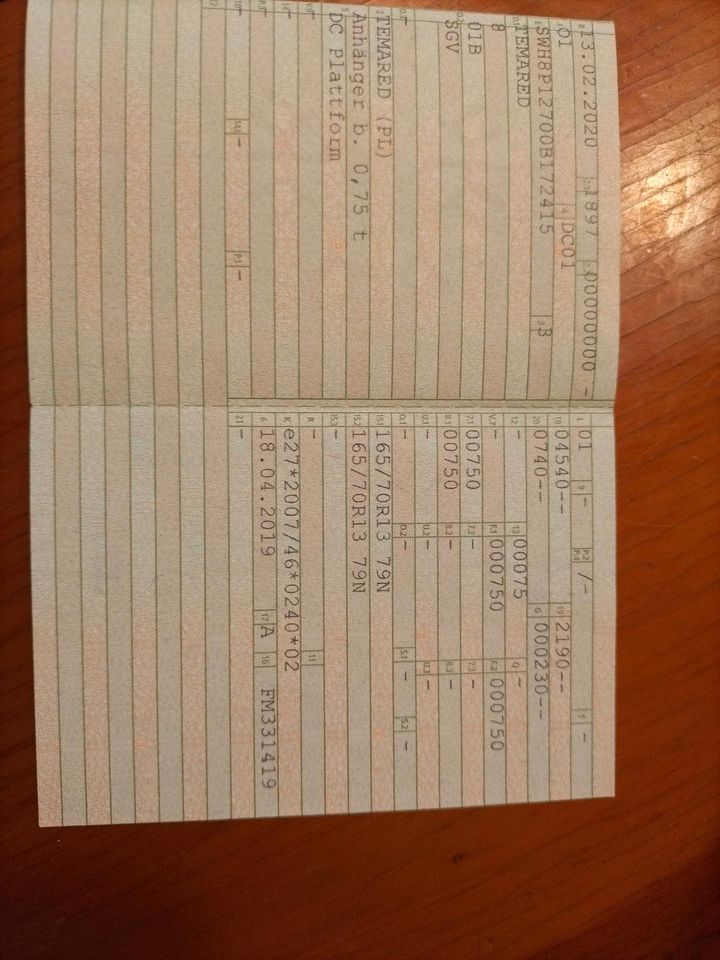 B 13.02.2020 2.1 1897 2.2 00000000 -
J 01 4 DC01
E SWH8P12700B172415 3 3
D.1 TEMARED
8
01B
SGV
2 TEMARED (PL)
Anhänger b. 0,75 t
5 DC Plattform
V.9 -
14 -
P.3 -
10 - 14.1 - P.1 -
22
L 01 9 - P.2 P.4 /- T -
18 04540-- 19 2190--
20 0740-- G 000230--
12 - 13 00075 Q -
V.7 - F.1 000750 F.2 000750
7.1 00750 7.2 - 7.3 -
8.1 00750 8.2 - 8.3 -
U.1 - U.2 - U.3 -
O.1 - O.2 - S.1 - S.2 -
15.1 165/70R13 79N
15.2 165/70R13 79N
15.3 -
R - 11
K e27*2007/46*0240*02
6 18.04.2019 17 A 16 FM331419
21 -